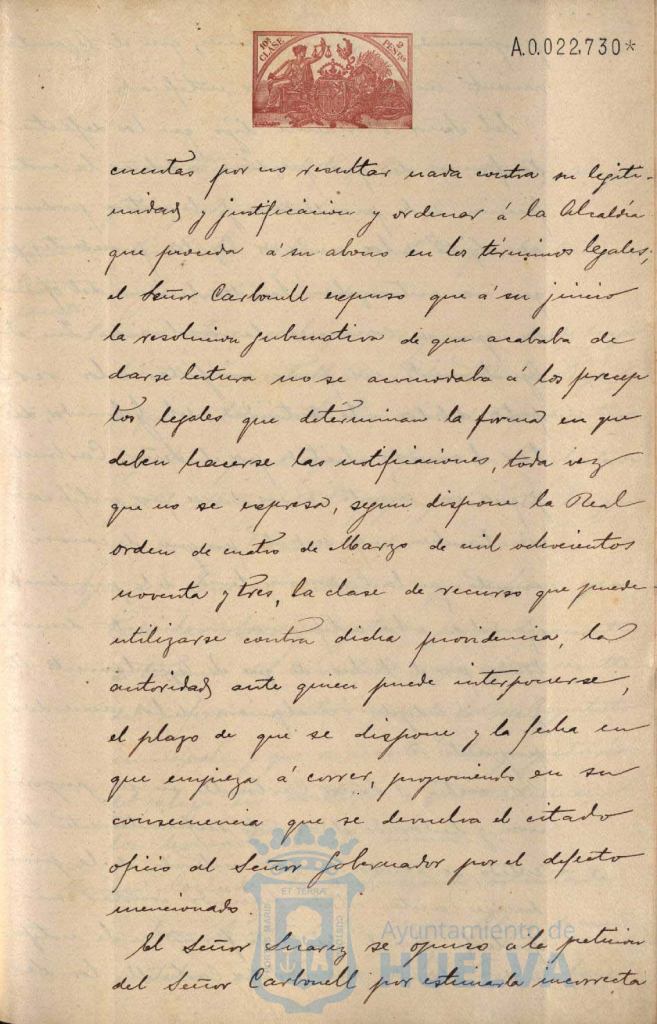 10ª CLASE
2 PESETAS
A.0.022,730*
cuentas por no resultar nada contra su legiti-
midad y justificacion y ordenar á la Alcaldía
que proceda á su abono en los términos legales;
el Señor Carbonell expuso que á su juicio
la resolucion gubernativa de que acababa de
darse lectura no se acomodaba á los precep
tos legales que determinan la forma en que
deben hacerse las notificaciones, toda vez
que no se expresa, segun dispone la Real
orden de cuatro de Marzo de mil ochocientos
noventa y tres, la clase de recurso que puede
utilizarse contra dicha providencia, la
autoridad ante quien puede interponerse,
el plazo de que se dispone y la fecha en
que empieza á correr, proponiendo en su
consecuencia que se devuelva el citado
oficio al Señor Gobernador por el defecto
mencionado.
El Señor Suarez se opuso a la peticion
del Señor Carbonell por estimarla incorrecta
PORTUS MARIS ET TERRAE CUSTODIA
Ayuntamiento de
HUELVA